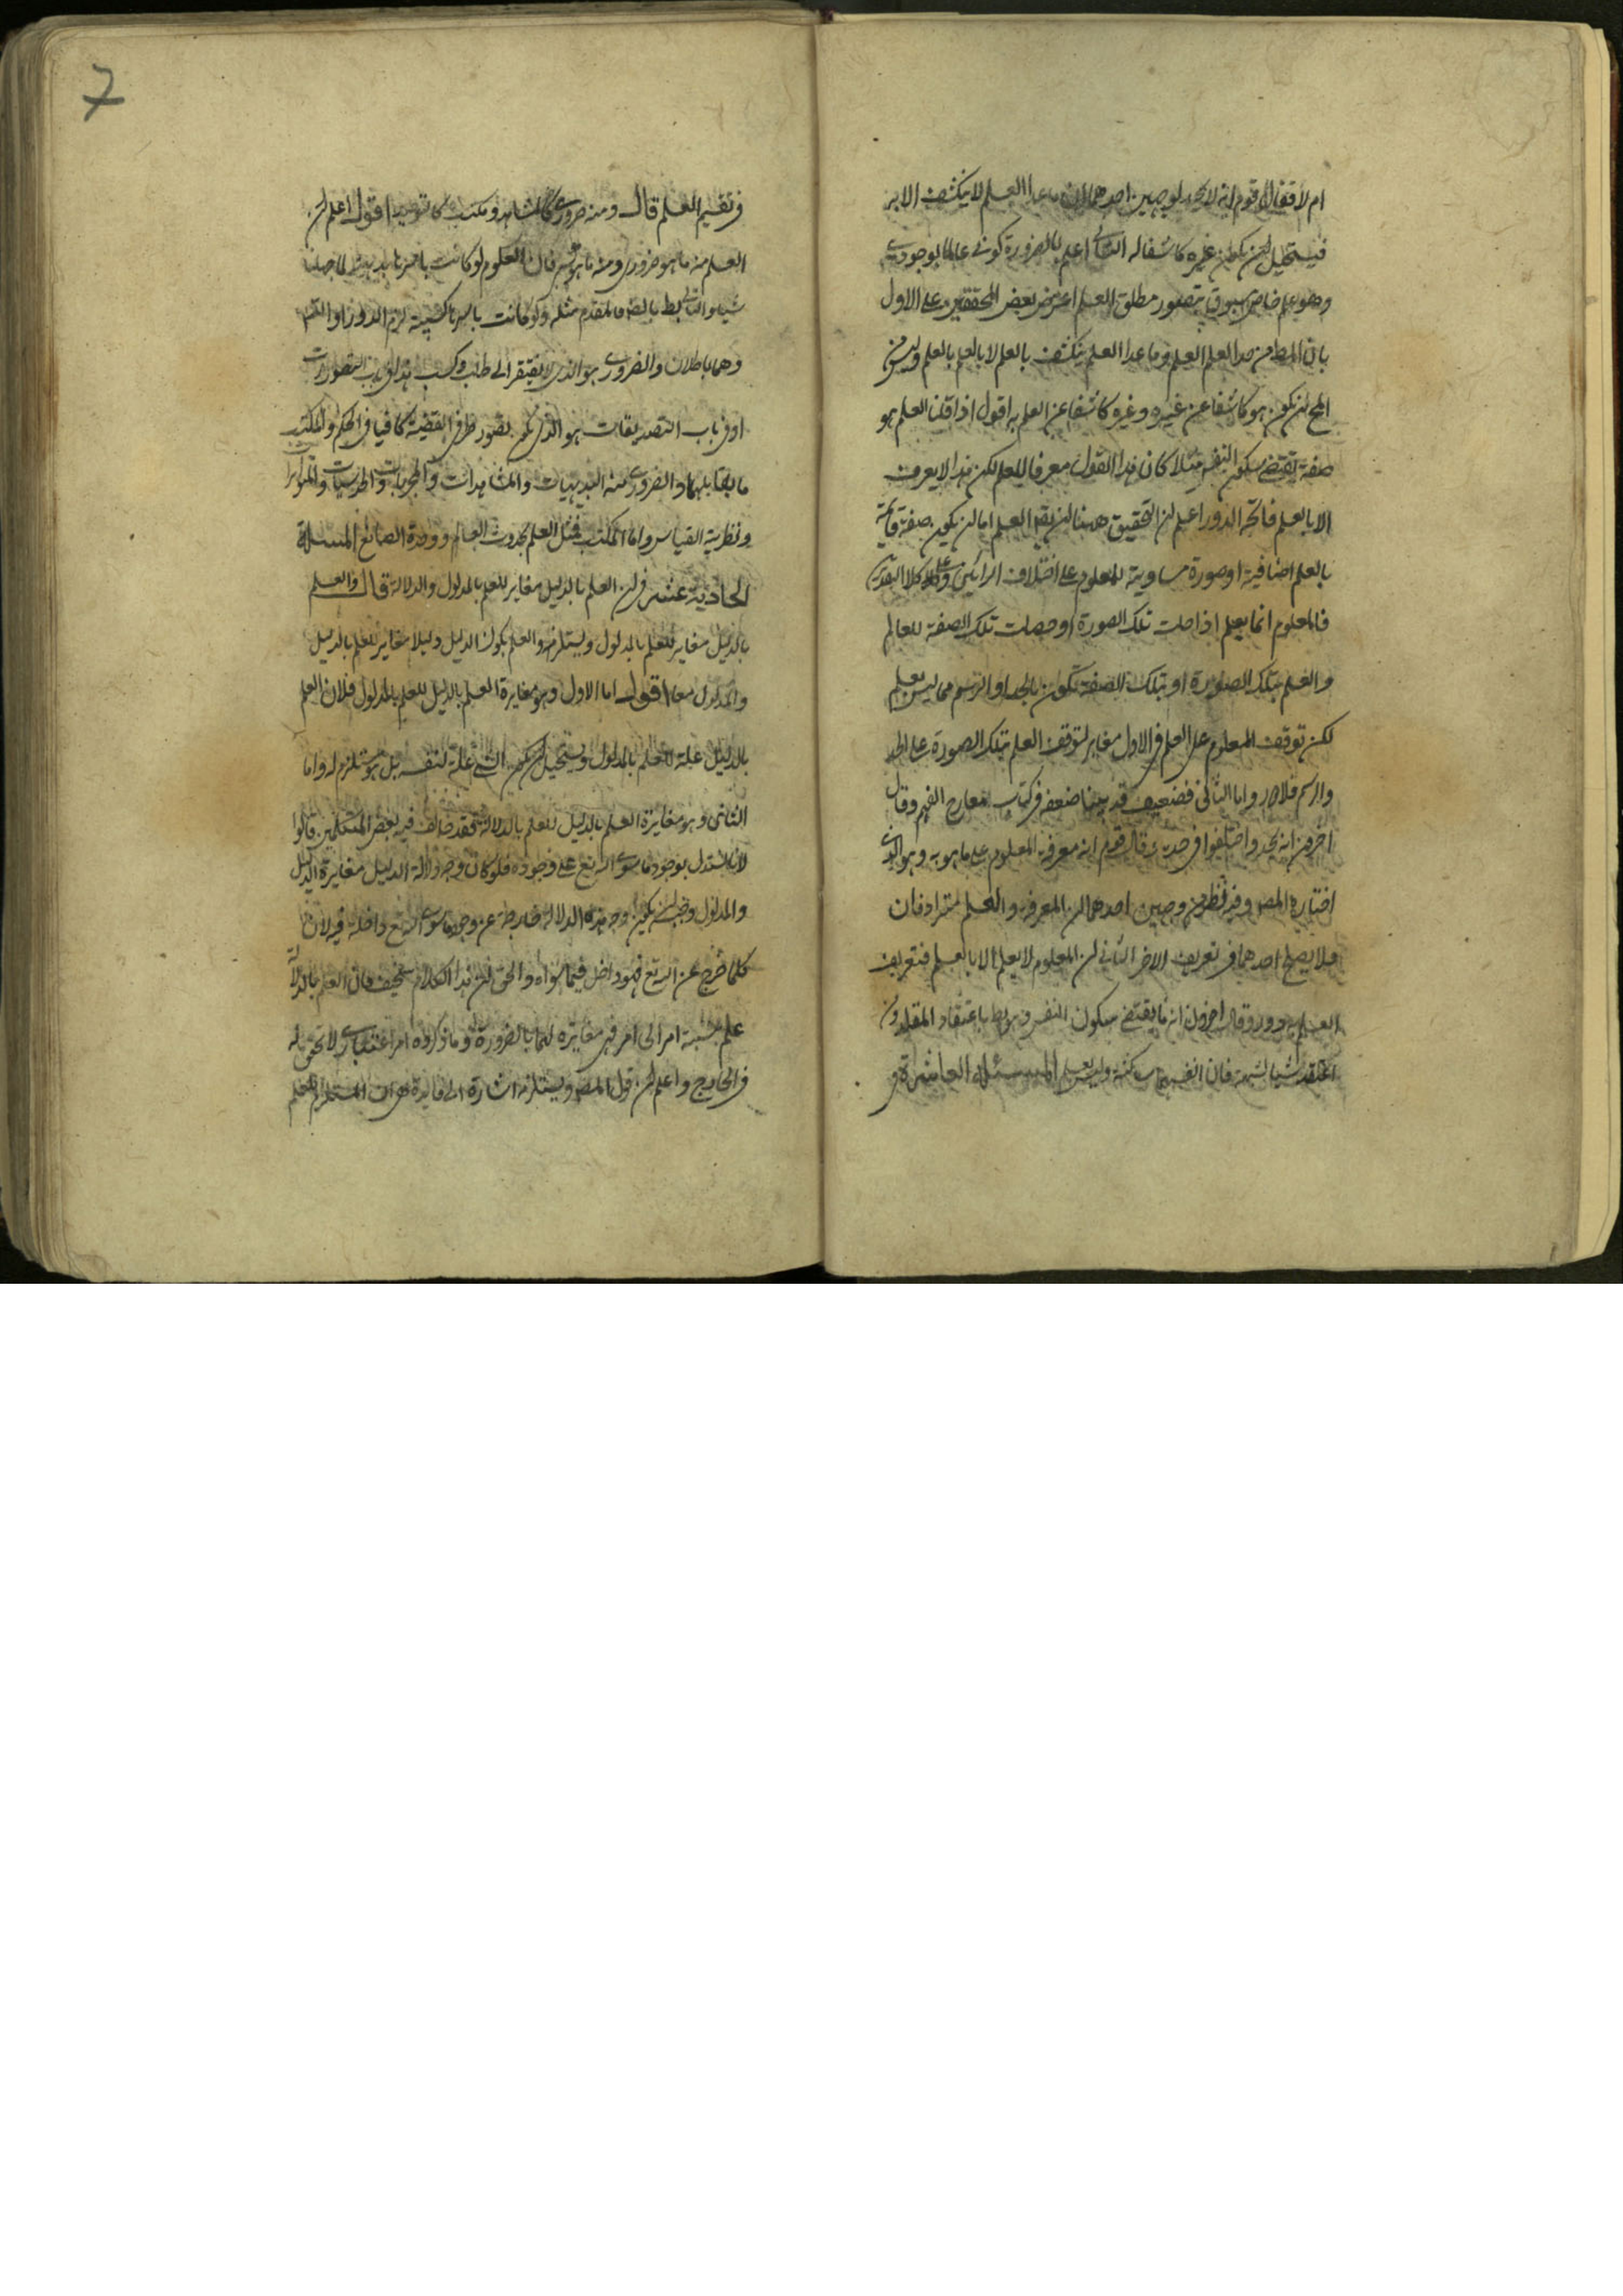 ام لا فقال قوم انه لا يحد لوجهين احدهما ان ما عدا العلم لا ينكشف الا به
فيستحيل ان يكون غيره كاشفا له الثاني اعلم بالضرورة كوني عالما بوجودي
وهو علم خاص مسبوق بتصور مطلق العلم اعترض بعض المحققين على الاول
بان المط من حد العلم العلم وما عدا العلم ينكشف بالعلم لا بالعلم بالعلم وليس من
المح ان يكون هو كاشفا عن غيره وغيره كاشفا عن العلم به اقول اذا قلنا العلم هو
صفة تقتضي سكون النفس مثلا كان هذا القول معرفا للعلم لكن هذا لا يعرف
الا بالعلم فاتجه الدور اعلم ان التحقيق ههنا ان نقول العلم اما ان يكون صفة قائمة
بالعلم اضافية او صورة مساوية للمعلوم على اختلاف الرأيين وعلى كلا التقديرين
فالمعلوم انما يعلم اذا حلت تلك الصورة او حصلت تلك الصفة للعالم
والعلم بتلك الصورة او بتلك الصفة يكون بالحد او الرسم مما ليس بعلم
لكن توقف المعلوم على العلم في الاول مغاير لتوقف العلم بتلك الصورة على الحد
والرسم فلا دور واما الثاني فضعيف قد بينا ضعفه في كتاب معارج الفهم وقال
اخرون انه يحد واختلفوا في حده فقال قوم انه معرفة المعلوم على ما هو به وهو الذي
اختاره المص وفيه نظر من وجهين احدهما ان المعرفة والعلم مترادفان
فلا يصلح احدهما في تعريف الاخر الثاني ان المعلوم لا يعلم الا بالعلم فتعريف
العلم به دور وقال اخرون انه ما يقتضي سكون النفس وهو بط باعتقاد المقلد ومن
اعتقد شيئا لشبهة فان انفسهما ساكنة وليس بعلم المسئلة العاشرة في
في تقسيم العلم قال ومنه ضروري كالمشاهد ومكتسب كالتوحيد اقول اعلم ان
العلم منه ما هو ضروري ومنه ما هو كسبي فان العلوم لو كانت باسرها بديهية لما جهلنا
شيئا والتالي بط بالضرورة فالمقدم مثله ولو كانت باسرها كسبية لزم الدور او التسلسل
وهما باطلان والضروري هو الذي لا يفتقر الى طلب وكسب هذا في باب التصورات
او في باب التصديقات هو الذي يكون تصور طرفي القضية كافيا في الحكم والمكتسب
ما يقابلهما والضروري منه البديهيات والمشاهدات والمجربات والحدسيات والمتواترات
ونظرية القياس واما المكتسب فمثل العلم بحدوث العالم ووحدة الصانع المسئلة
الحادية عشر في ان العلم بالدليل مغاير للعلم بالمدلول والدلالة قال والعلم
بالدليل مغاير للعلم بالمدلول ويستلزمه والعلم بكون الدليل دليلا مغاير للعلم بالدليل
والمدلول معا اقول اما الاول وهو مغايرة العلم بالدليل للعلم بالمدلول فلان العلم
بالدليل علة للعلم بالمدلول ويستحيل ان يكون الشيء علة لنفسه بل هو مستلزم له واما
الثاني وهو مغايرة العلم بالدليل للعلم بالدلالة فقد خالف فيه بعض المتكلمين قالوا
لانا نستدل بوجود ما سوى الله تع على وجوده فلو كان وجه دلالة الدليل مغايرة للدليل
والمدلول وجب ان يكون وجه هذه الدلالة خارجة عن وجود ما سوى الله تع داخلة فيه لان
كلما خرج عن الله تع فهو داخل فيما سواه والحق ان هذا الكلام سخيف فان العلم بالدلالة
علم بنسبة امر الى امر فهي مغايرة لهما بالضرورة وما ذكروه امر اعتباري لا تحقق له
في الخارج واعلم ان قول المص ويستلزمه اشارة الى فايدة هي ان المستلزم للعلم